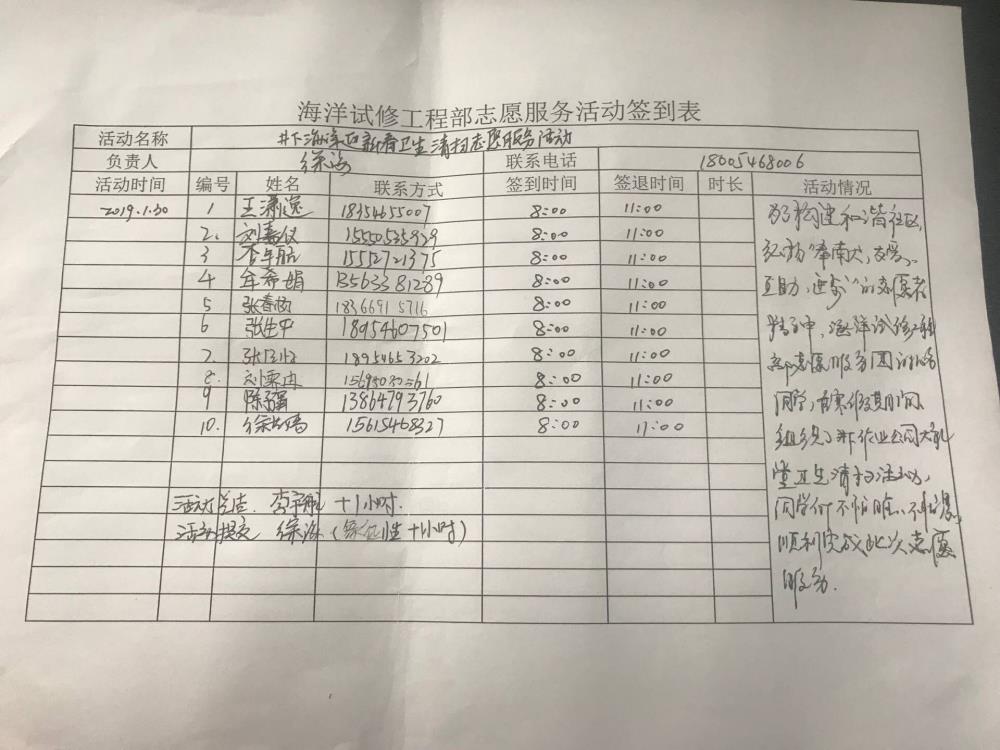 海洋试修工程部志愿服务活动签到表
活动名称 井下海洋 新春卫生清扫志愿服务活动
负责人 徐海 联系电话 18005468006
活动时间 编号 姓名 联系方式 签到时间 签退时间 时长 活动情况
2019.1.30 1 王潇逸 18354655007 8:00 11:00
2. 刘嘉仪 15550535939 8:00 11:00
3 15552721375 8:00 11:00
4 年希娟 13563381289 8:00 11:00
5 张春 18366915716 8:00 11:00
6 张生平 18954607501 8:00 11:00
7. 18954653202 8:00 11:00
8. 刘 8:00 11:00
9 陈 13864793760 8:00 11:00
10. 徐 15615468327 8:00 11:00
活动总结 李宇航 +1小时.
活动提交 徐海 ( 性+1小时)
为构建和谐社区,
弘扬“奉献、友爱、
互助、进步”的志愿者
精神中, 海洋试修工程
部志愿服务团
同学, 寒假期间,
组织了井下作业公司大礼
堂卫生清扫活动,
同学们不怕脏、不怕
顺利完成此次志愿
服务.